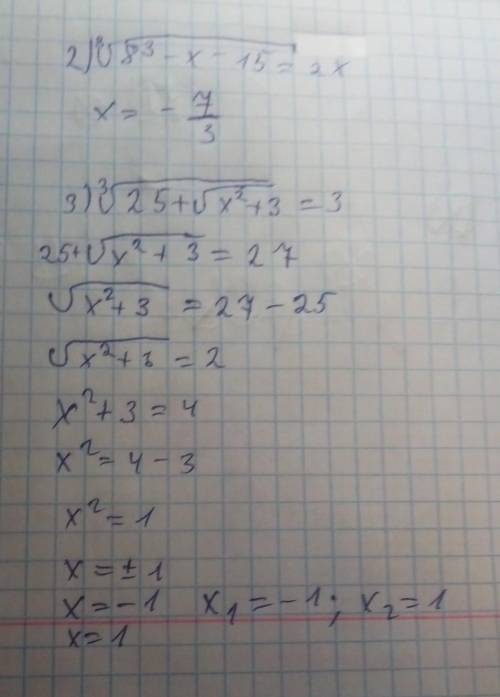 2) ∛(8³ - x - 15) = 2x
x = - 7/3
3) ∛(25 + √(x² + 3)) = 3
25 + √(x² + 3) = 27
√(x² + 3) = 27 - 25
√(x² + 3) = 2
x² + 3 = 4
x² = 4 - 3
x² = 1
x = ± 1
x = -1 x₁ = -1; x₂ = 1
x = 1